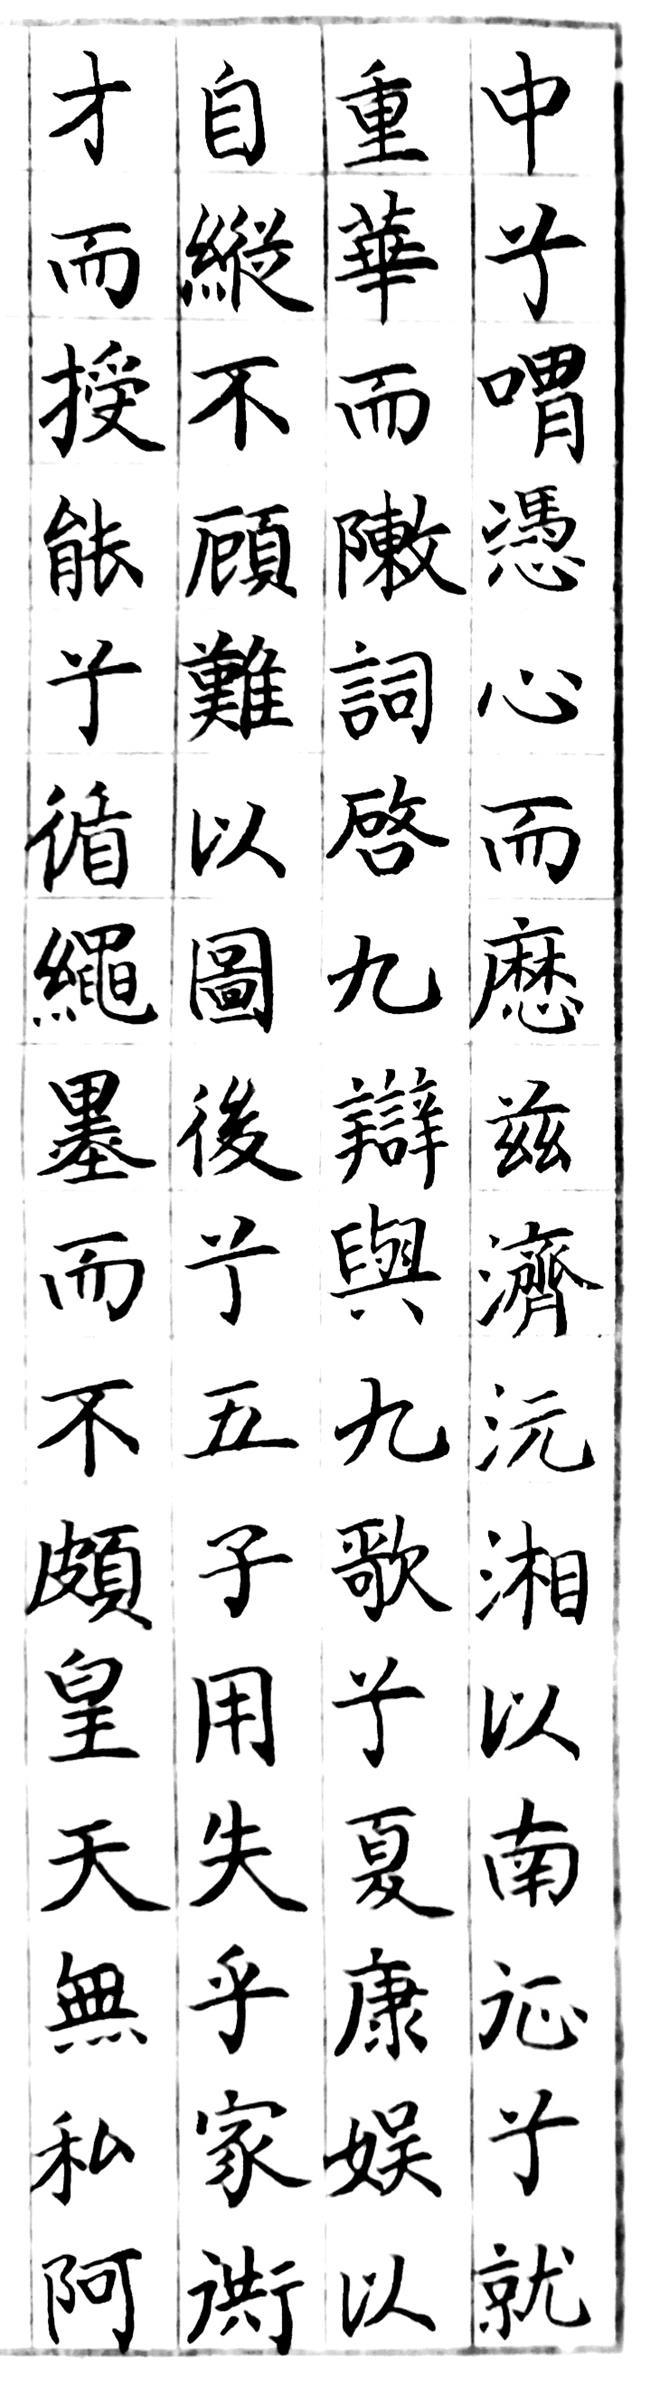 中兮喟憑心而歷茲濟沅湘以南征兮就
重華而敶詞啓九辯與九歌兮夏康娛以
自縱不顧難以圖後兮五子用失乎家衖
才而授能兮循繩墨而不頗皇天無私阿